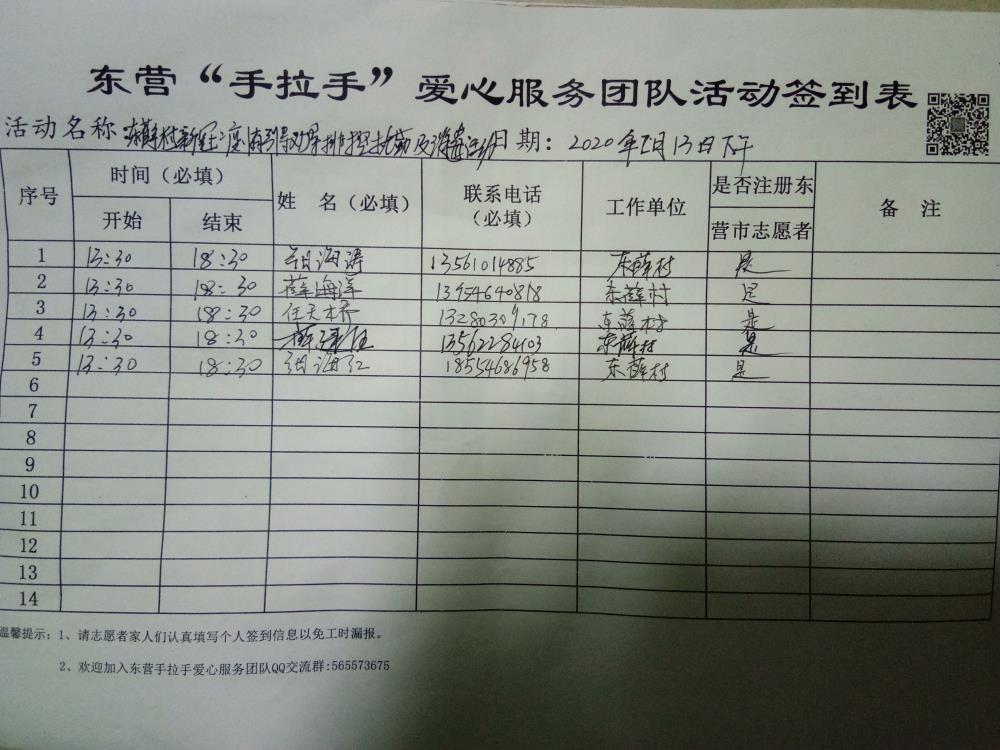 东营“手拉手”爱心服务团队活动签到表
活动名称：东薛村新冠 及消毒活动 日期：2020年2月13日下午
序号 时间（必填） 姓 名（必填） 联系电话（必填） 工作单位 是否注册东营市志愿者 备 注
开始 结束
1 13:30 18:30 海涛 13561014885 东薛村 是
2 13:30 18:30 薛海洋 13954640818 东薛村 是
3 13:30 18:30 任天桥 东薛村 是
4 13:30 18:30 13562284103 东薛村 是
5 13:30 18:30 海红 18554686958 东薛村 是
6
7
8
9
10
11
12
13
14
温馨提示：1、请志愿者家人们认真填写个人签到信息以免工时漏报。
2、欢迎加入东营手拉手爱心服务团队QQ交流群:565573675